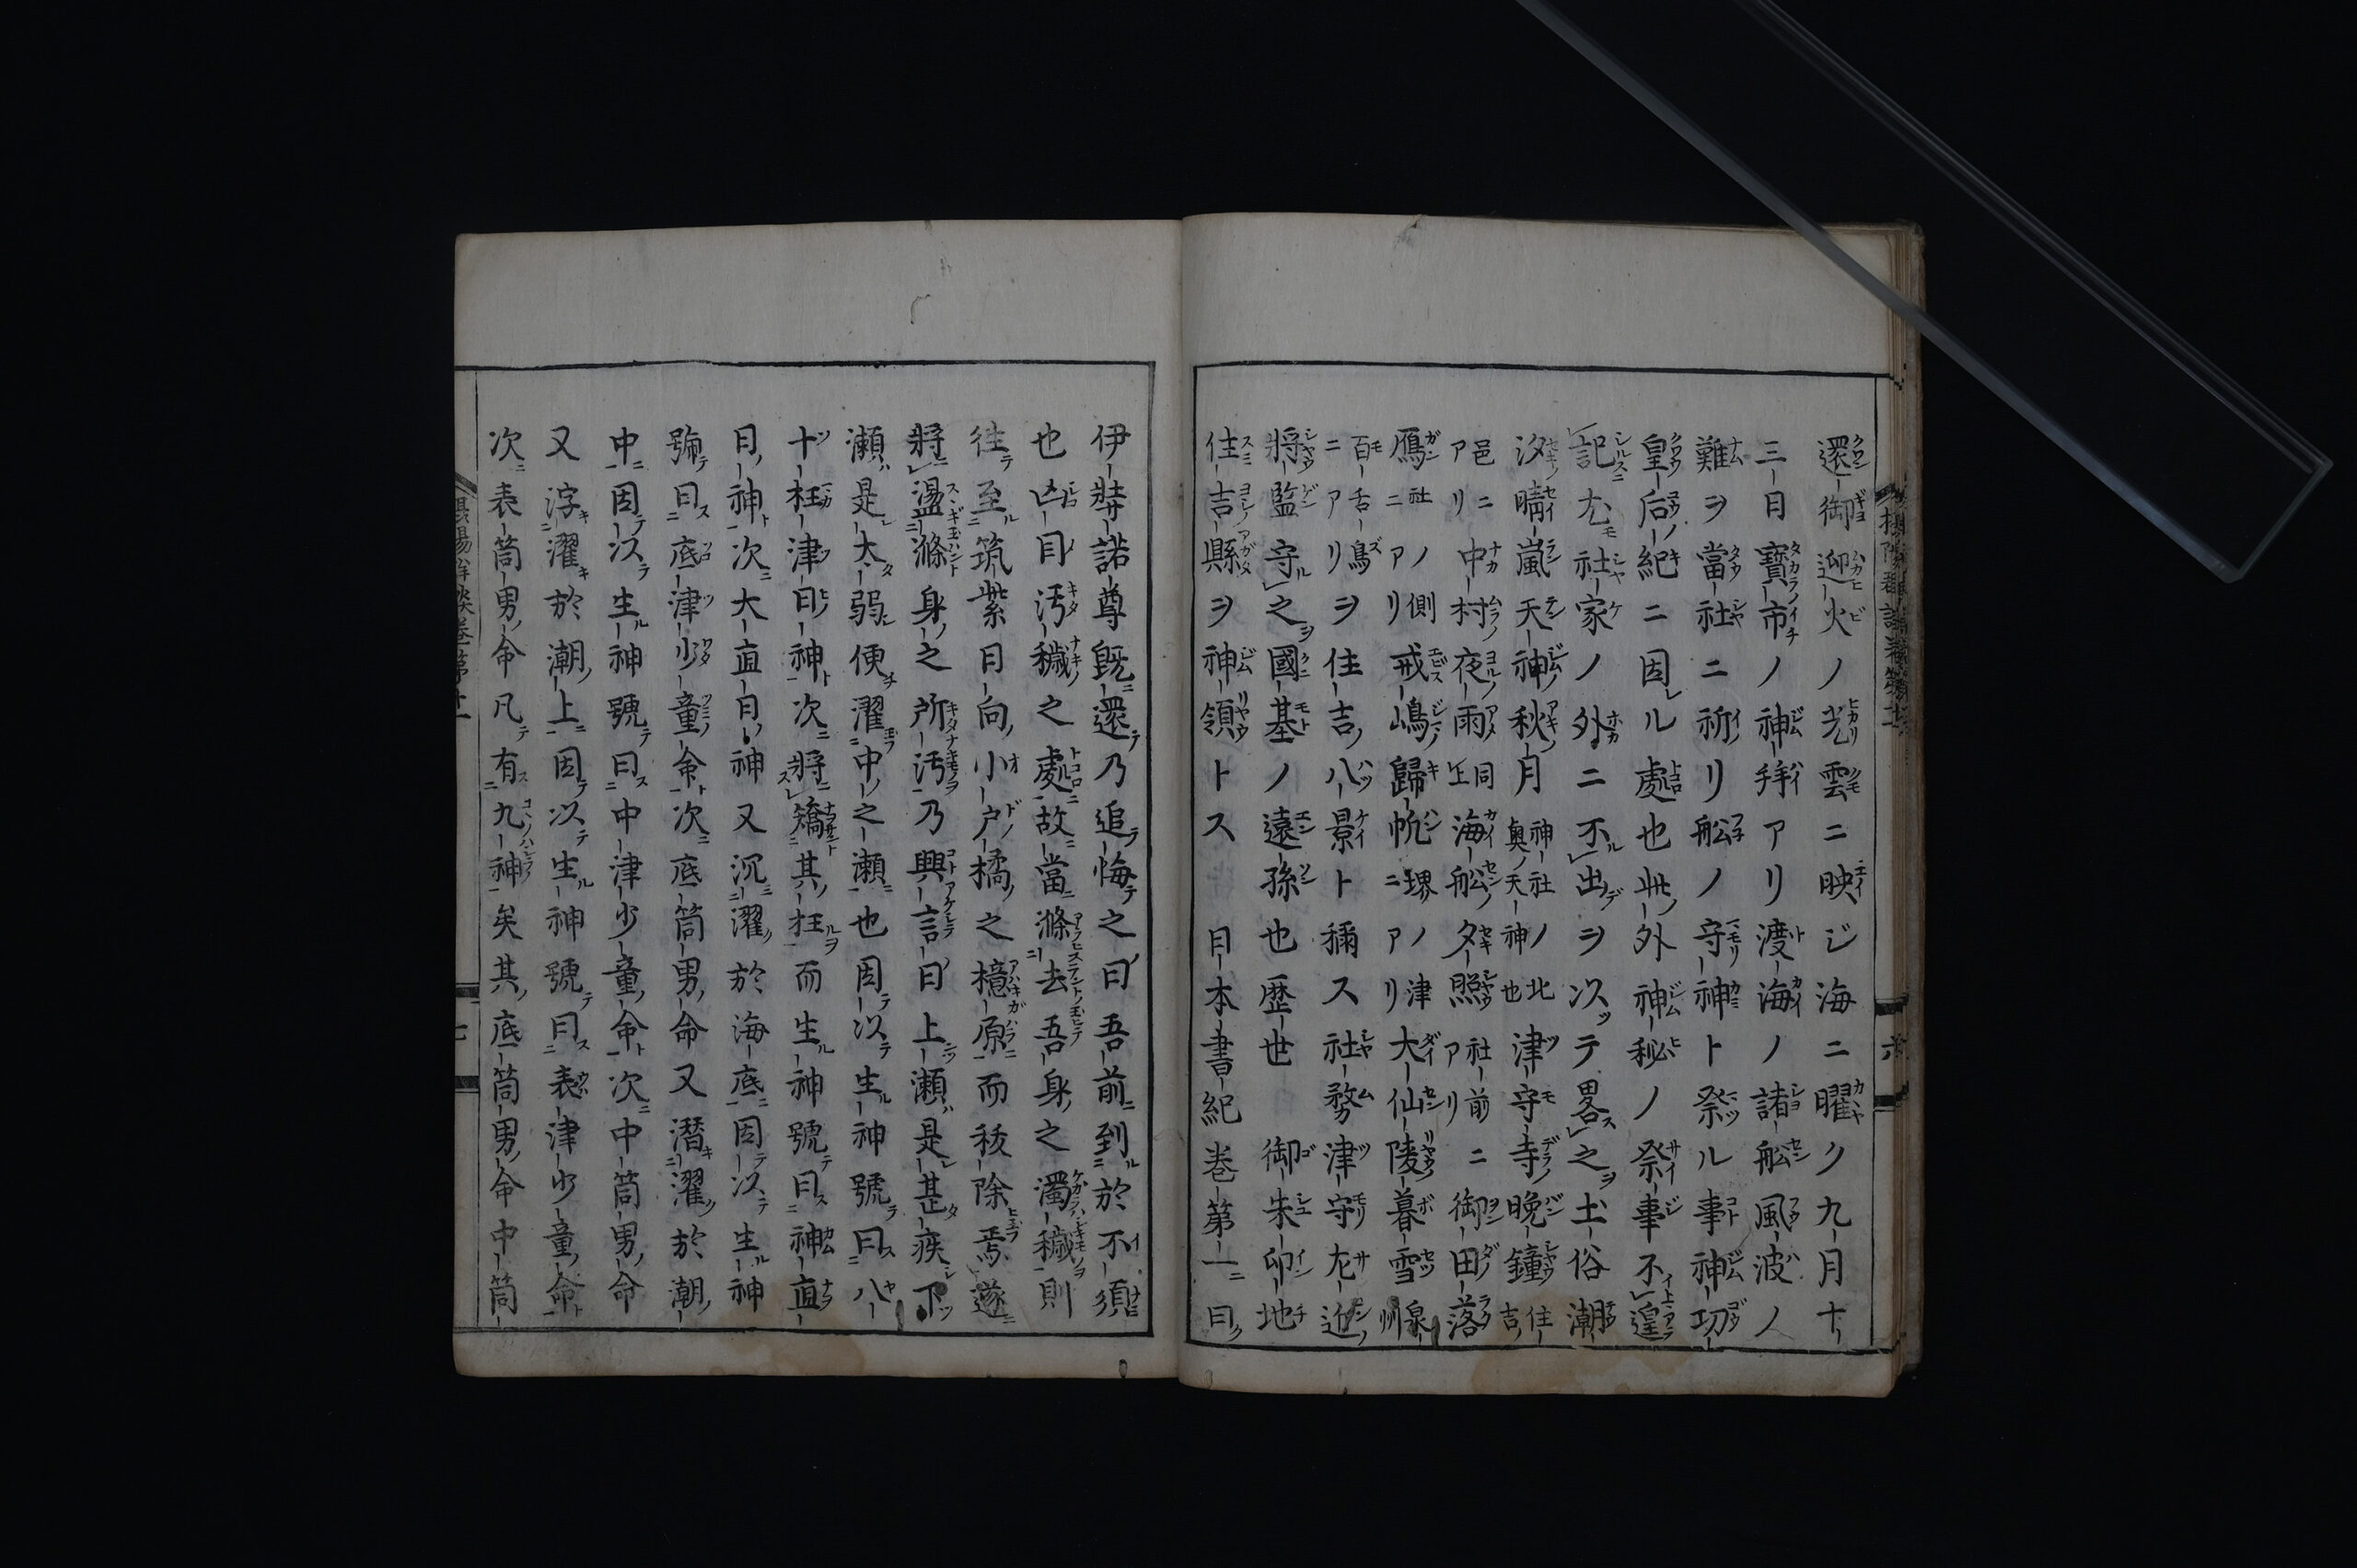 還御迎火ノ光雲ニ映ジ海ニ曜ク九月十
三日寶市ノ神拜アリ渡海ノ諸舩風波ノ
難ヲ當社ニ祈リ舩ノ守神ト祭ル事神功
皇后紀ニ因ル處也此外神秘ノ祭事不遑
記尤社家ノ外ニ不出ヲ以テ畧之土俗潮
汐晴嵐天神秋月神社ノ北奥ノ天神也津守寺晩鐘住吉
邑ニアリ中村夜雨同上海舩夕照社前ニアリ御田落
鴈社ノ側ニアリ戒嶋歸帆堺ノ津ニアリ大仙陵暮雪泉州
百舌鳥ニアリヲ住吉八景ト稱ス社務津守左近
將監守之國基ノ遠孫也歴世御朱印地
住吉縣ヲ神領トス日本書紀巻第一曰
伊弉諾尊既還乃追悔之曰吾前到於不須
也凶目汚穢之處故當滌去吾身之濁穢則
往至筑紫日向小戸橘之檍原而祓除焉遂
將盪滌身之所汚乃興言曰上瀬是甚疾下
瀬是太弱便濯中之瀬也因以生神號曰八
十枉津日神次將矯其枉而生神號曰神直
日神次大直日神又沉濯於海底因以生神
號曰底津少童命次底筒男命又潜濯於潮
中因以生神號曰中津少童命次中筒男命
又浮濯於潮上因以生神號曰表津少童命
次表筒男命凡有九神矣其底筒男命中筒